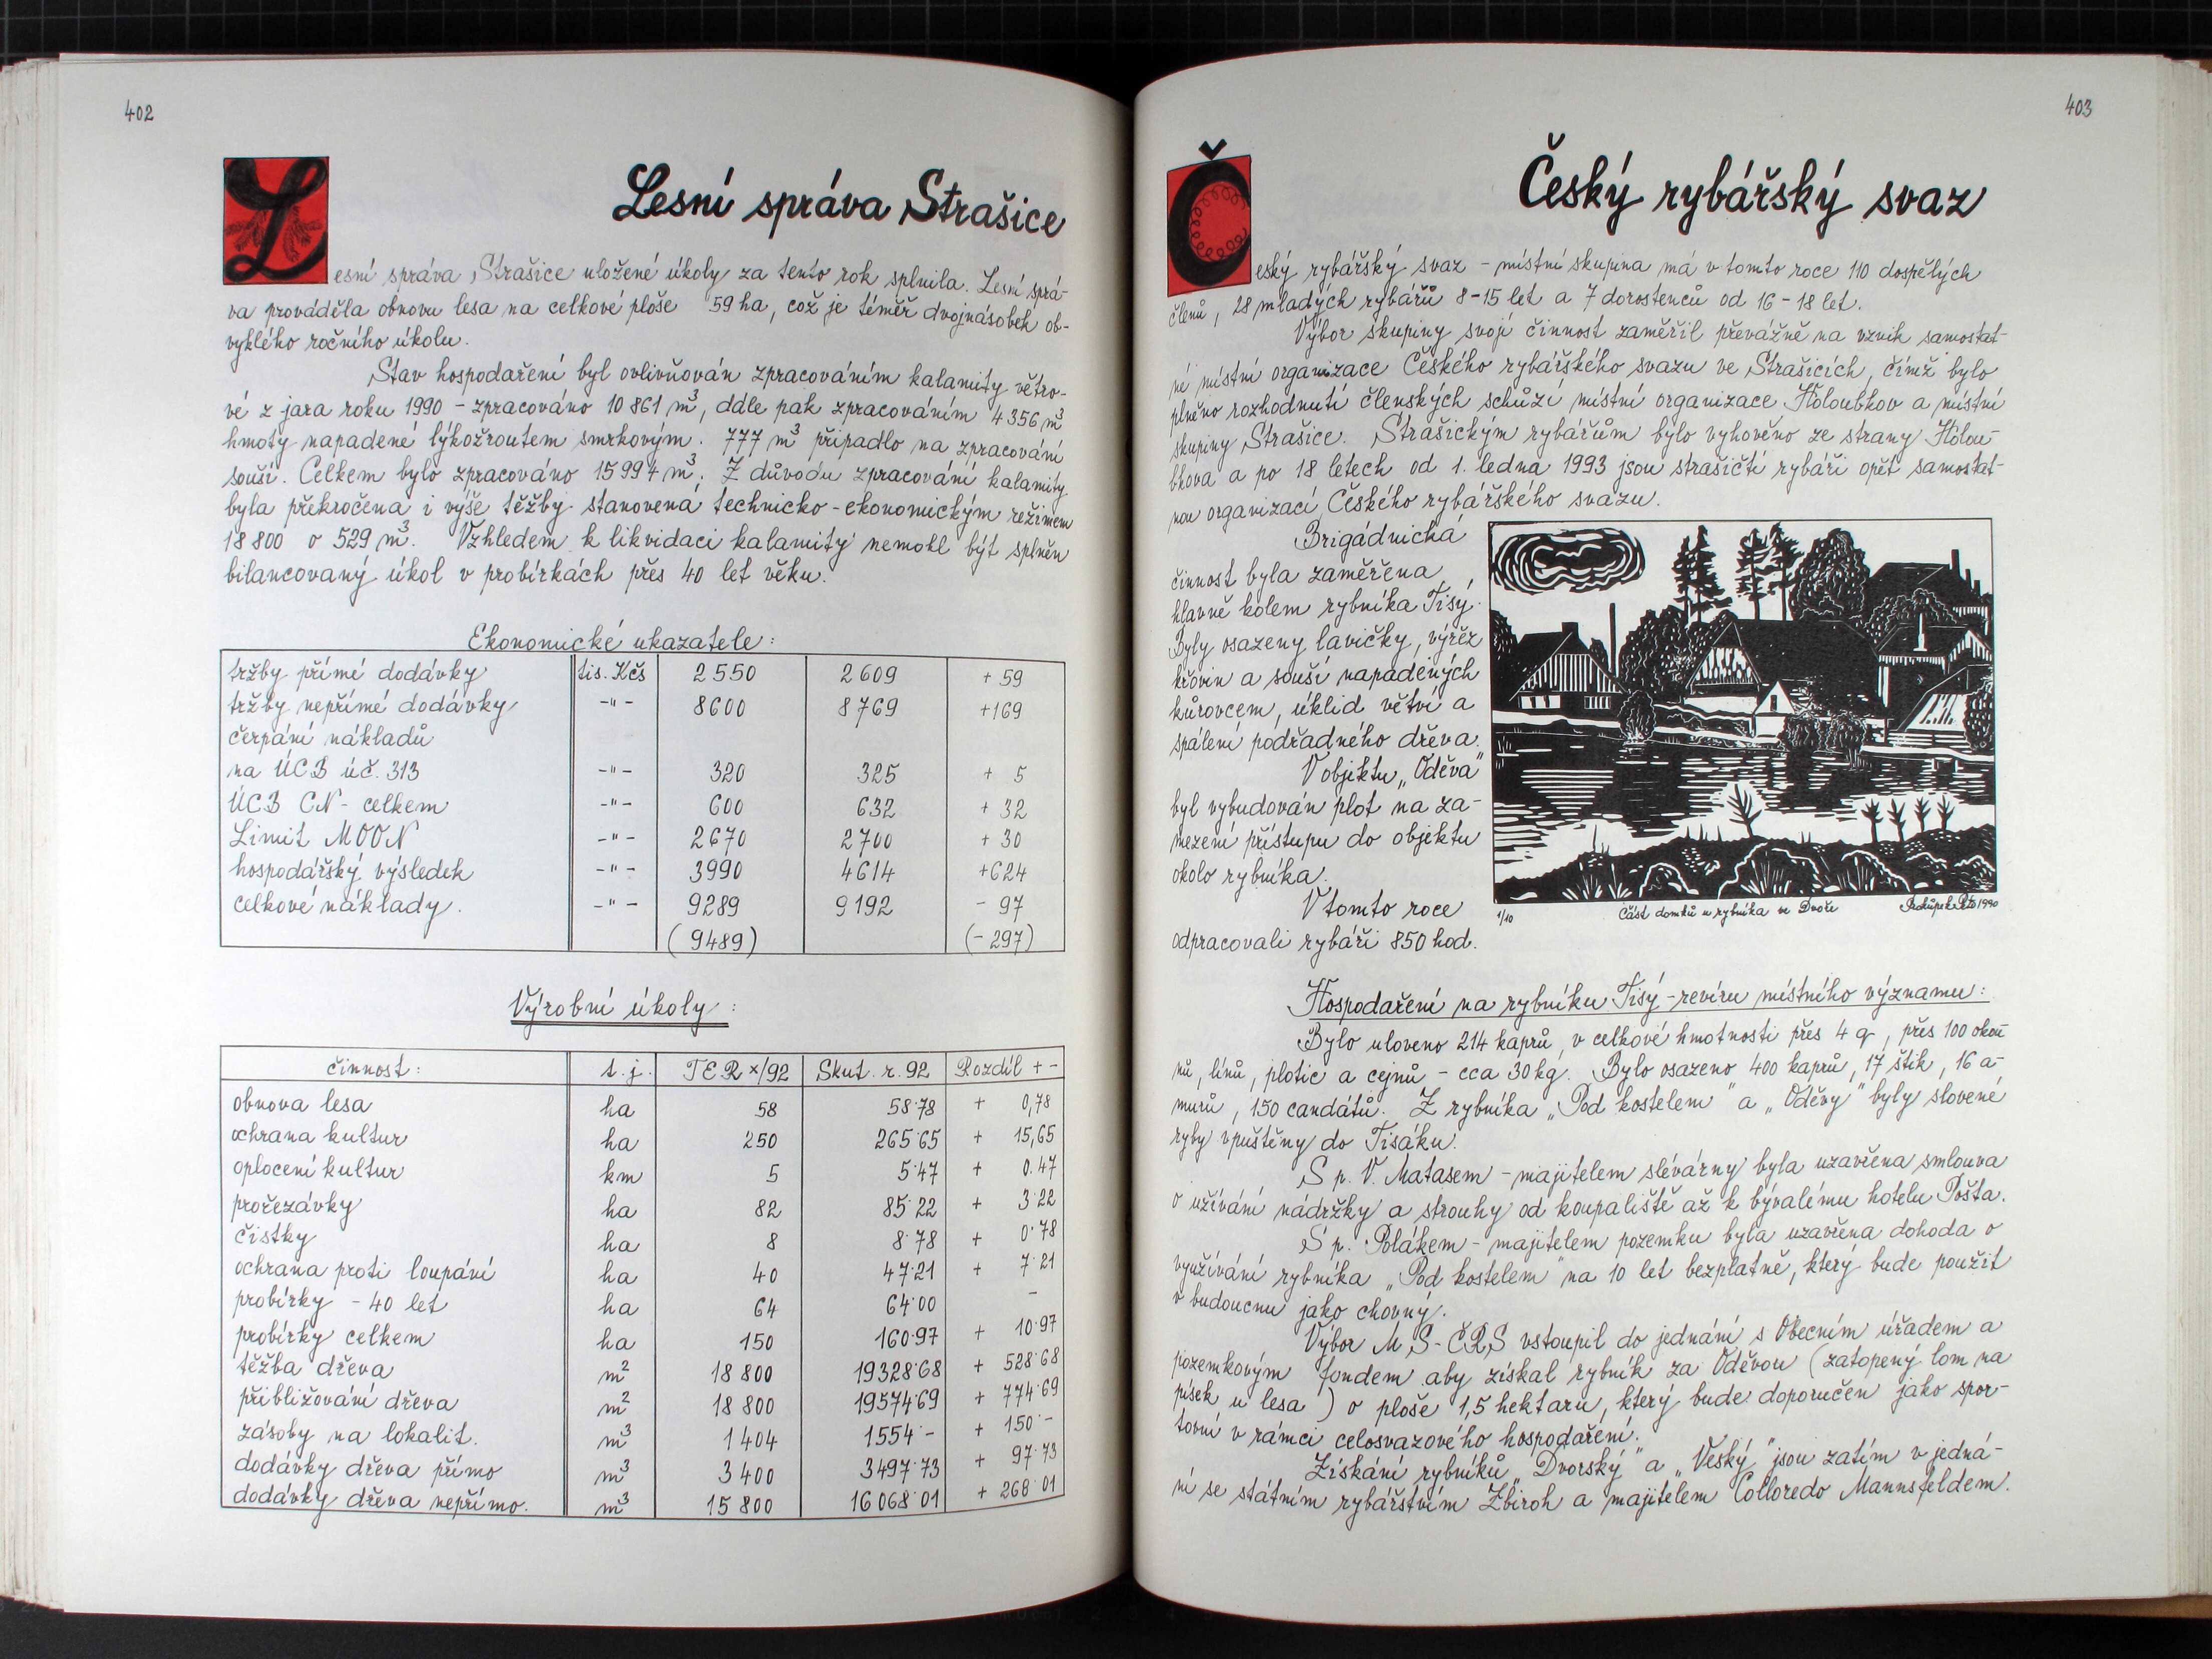 402
Lesní správa Strašice
Lesní správa Strašice uložené úkoly za tento rok splnila. Lesní sprá-
va prováděla obnovu lesa na celkové ploše 59 ha, což je téměř dvojnásobek ob-
vyklého ročního úkolu.
Stav hospodaření byl ovlivňován zpracováním kalamity větro-
vé z jara roku 1990 - zpracováno 10 861 m³, dále pak zpracováním 4 356 m³
hmoty napadené lýkožroutem smrkovým. 777 m³ připadlo na zpracování
souší. Celkem bylo zpracováno 15 994 m³. Z důvodu zpracování kalamity
byla překročena i výše těžby stanovená technicko-ekonomickým režimem
18 800 o 529 m³. Vzhledem k likvidaci kalamity nemohl být splněn
bilancovaný úkol v probírkách přes 40 let věku.
Ekonomické ukazatele:
tržby přímé dodávky tis. Kčs 2 550 2 609 + 59
tržby nepřímé dodávky -"- 8600 8 769 +169
čerpání nákladů
na ÚCB úč. 313 -"- 320 325 + 5
ÚCB CN - celkem -"- 600 632 + 32
Limit MOON -"- 2670 2700 + 30
hospodářský výsledek -"- 3990 4614 +624
celkové náklady. -"- 9289 9192 - 97
(9489) (-297)
Výrobní úkoly:
činnost: t.j. TER x/92 Skut. r. 92 Rozdíl + -
obnova lesa ha 58 58·78 + 0,78
ochrana kultur ha 250 265·65 + 15,65
oplocení kultur km 5 5·47 + 0.47
prořezávky ha 82 85·22 + 3·22
čistky ha 8 8·78 + 0·78
ochrana proti loupání ha 40 47·21 + 7·21
probírky - 40 let ha 64 64·00 -
probírky celkem ha 150 160·97 + 10·97
těžba dřeva m² 18 800 19328·68 + 528·68
přibližování dřeva m² 18 800 19574·69 + 774·69
zásoby na lokalit. m³ 1 404 1554·- + 150·-
dodávky dřeva přímo m³ 3 400 3497·73 + 97·73
dodávky dřeva nepřímo. m³ 15 800 16 068·01 + 268·01
403
Český rybářský svaz
Český rybářský svaz - místní skupina má v tomto roce 110 dospělých
členů, 28 mladých rybářů 8-15 let a 7 dorostenců od 16 - 18 let.
Výbor skupiny svojí činnost zaměřil převážně na vznik samostat-
né místní organizace Českého rybářského svazu ve Strašicích, čímž bylo
plněno rozhodnutí členských schůzí místní organizace Holoubkov a místní
skupiny Strašice. Strašickým rybářům bylo vyhověno ze strany Holou-
bkova a po 18 letech od 1. ledna 1993 jsou strašičtí rybáři opět samostat-
nou organizací Českého rybářského svazu.
Brigádnická
činnost byla zaměřena
hlavně kolem rybníka Tisý.
Byly osazeny lavičky, výřez
křovin a souší napadených
kůrovcem, úklid větví a
spálení podřadného dřeva.
V objektu „Oděva"
byl vybudován plot na za-
mezení přístupu do objektu
okolo rybníka.
V tomto roce
odpracovali rybáři 850 hod.
1/10 Část domků u rybníka ve Dvoře 1990
Hospodaření na rybníku Tisý - revíru místního významu:
Bylo uloveno 214 kaprů, v celkové hmotnosti přes 4 q, přes 100 okou-
nů, línů, plotic a cejnů - cca 30 kg. Bylo osazeno 400 kaprů, 17 štik, 16 a-
murů, 150 candátů. Z rybníka „Pod kostelem" a „Oděvy" byly slovené
ryby vpuštěny do Tisáku.
S p. V. Matasem - majitelem slévárny byla uzavřena smlouva
o užívání nádržky a strouhy od koupaliště až k bývalému hotelu Pošta.
S p. Polákem - majitelem pozemku byla uzavřena dohoda o
využívání rybníka „Pod kostelem" na 10 let bezplatně, který bude použit
v budoucnu jako chovný.
Výbor M S - ČRS vstoupil do jednání s Obecním úřadem a
pozemkovým fondem aby získal rybník za Oděvou (zatopený lom na
písek u lesa) o ploše 1,5 hektaru, který bude doporučen jako spor-
tovní v rámci celosvazového hospodaření.
Získání rybníků „Dvorský" a „Veský" jsou zatím v jedná-
ní se státním rybářstvím Zbiroh a majitelem Colloredo Mannsfeldem.